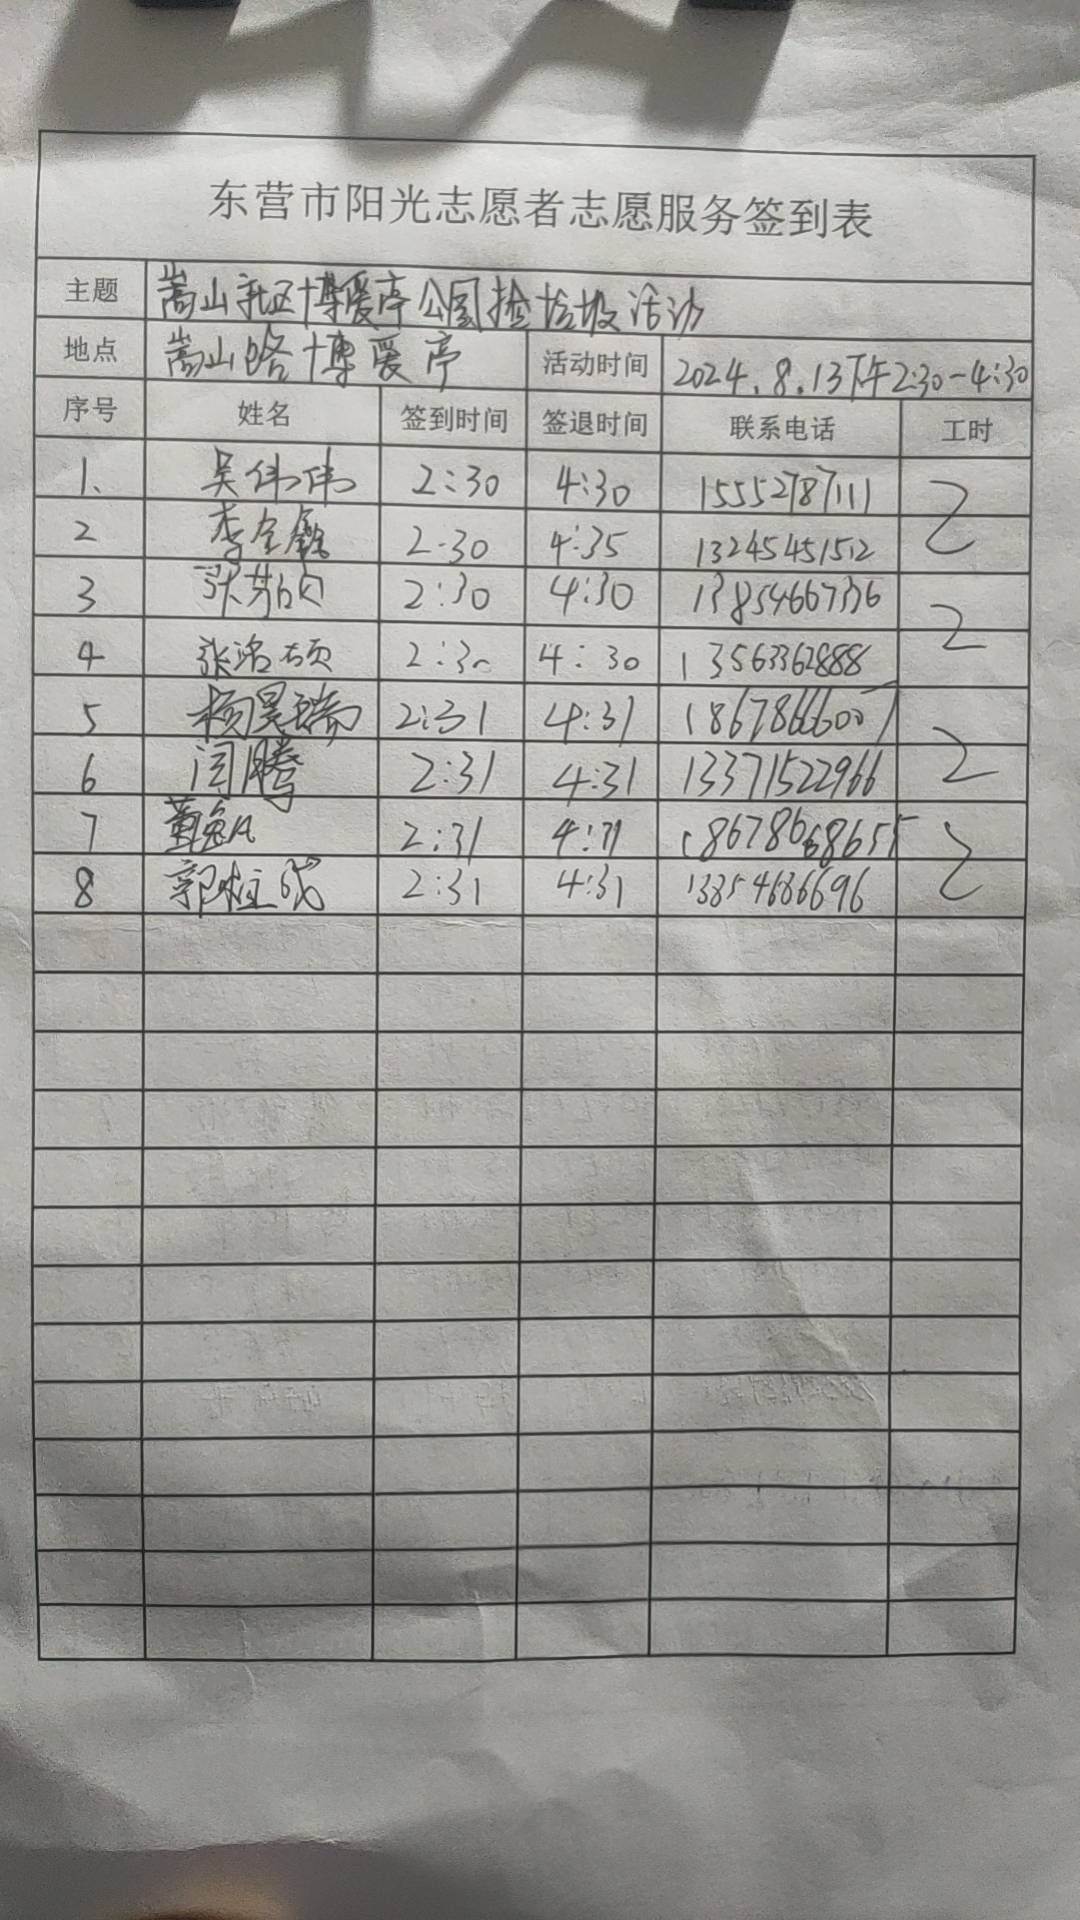 东营市阳光志愿者志愿服务签到表
主题 嵩山社区博爱亭公园捡垃圾活动
地点 嵩山路博爱亭 活动时间 2024.8.13下午2:30-4:30
序号 姓名 签到时间 签退时间 联系电话 工时
1、 吴伟伟 2:30 4:30 15552787111 2
2 李金鑫 2:30 4:35 13245451512
3 张 2:30 4:30 13854667336 2
4 张洺硕 2:30 4:30 13563362888
5 杨昊瑞 2:31 4:31 18678666007 2
6 闫腾 2:31 4:31 13371522966
7 董 2:31 4:31 18678668655 2
8 郭 2:31 4:31 13354686696